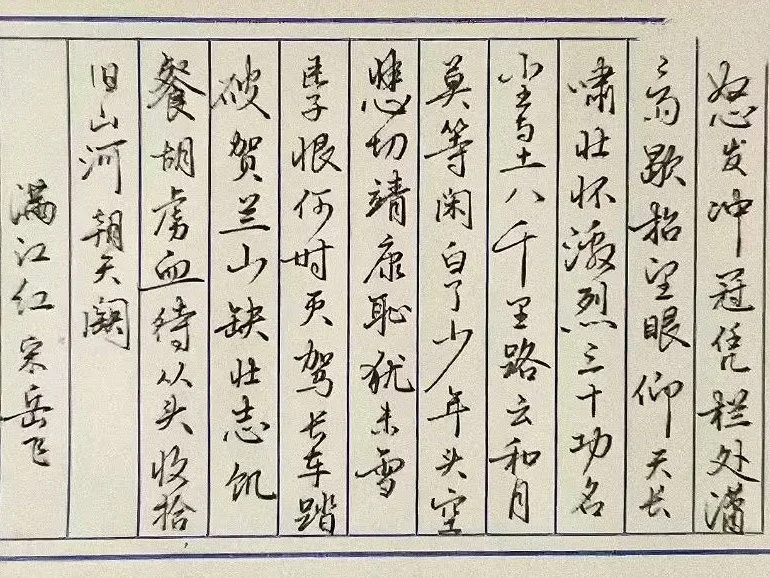 怒发冲冠凭栏处潇
々雨歇抬望眼仰天长
啸壮怀激烈三十功名
尘与土八千里路云和月
莫等闲白了少年头空
悲切靖康耻犹未雪
臣子恨何时灭驾长车踏
破贺兰山缺壮志饥
餐胡虏血待从头收拾
旧山河朝天阙
满江红宋岳飞